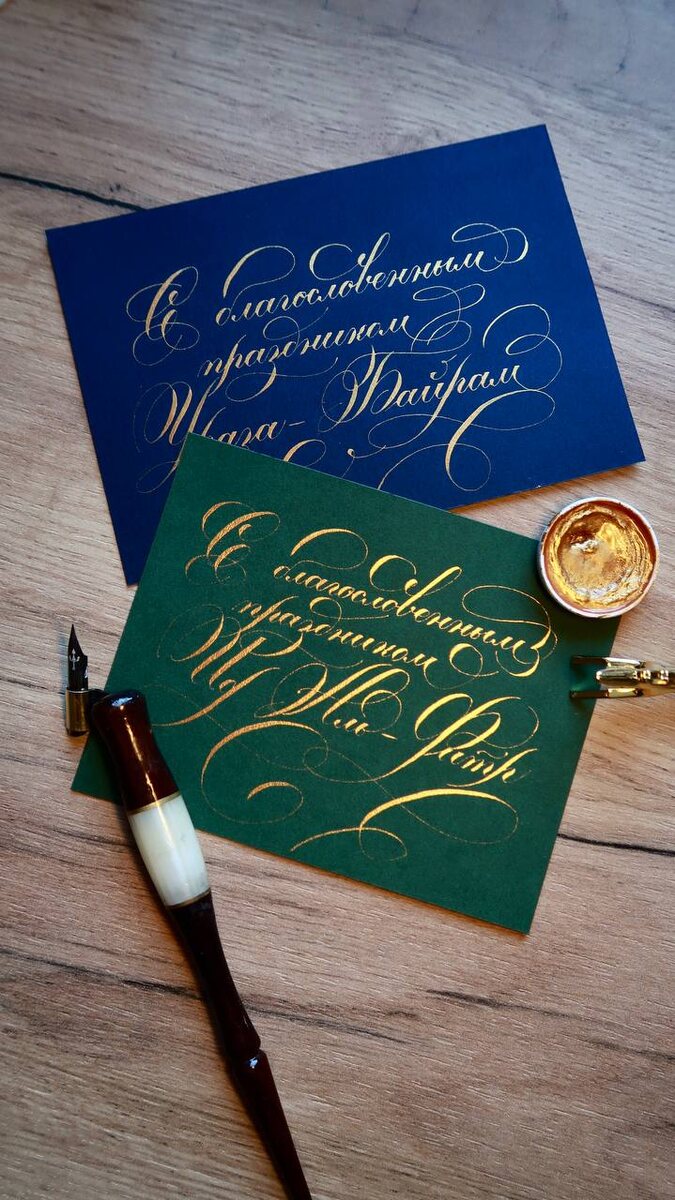 С благословенным
праздником
Ураза-Байрам
С благословенным
праздником
Ид Аль-Фитр